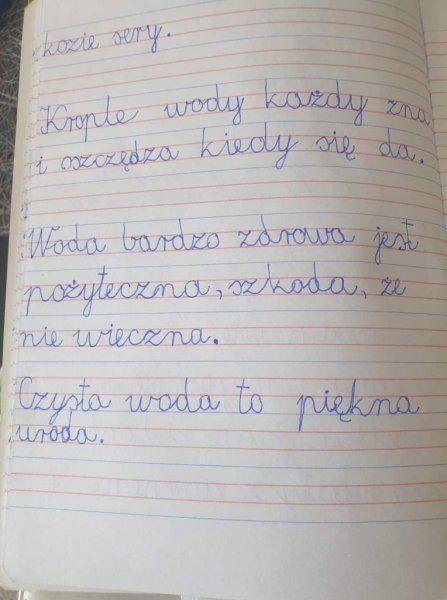 kozie sery.
Krople wody każdy zna
i oszczędza kiedy się da.
Woda bardzo zdrowa jest
pożyteczna, szkoda, że
nie wieczna.
Czysta woda to piękna
uroda.